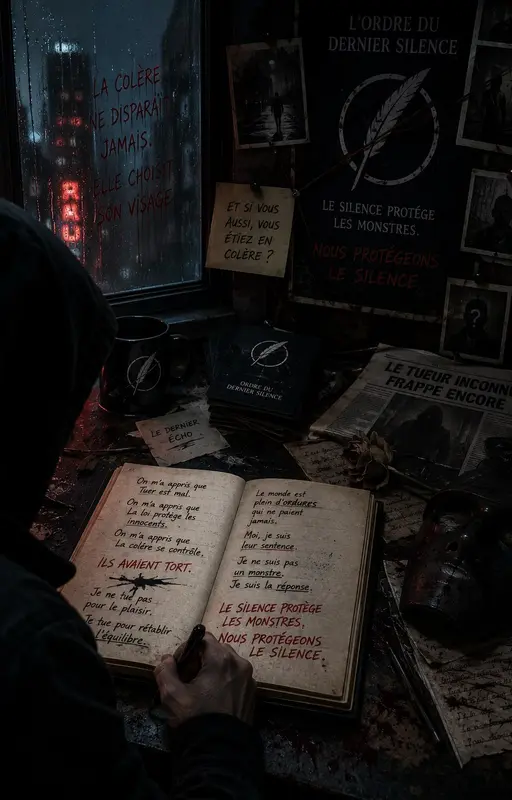 LA COLÈRE
NE DISPARAÎT
JAMAIS.
ELLE CHOISIT
SON VISAGE
L'ORDRE DU
DERNIER SILENCE
LE SILENCE PROTÉGE
LES MONSTRES.
NOUS PROTÉGEONS
LE SILENCE.
ET SI VOUS
AUSSI, VOUS
ÉTIEZ EN
COLÈRE ?
?
ORDRE DU
DERNIER SILENCE
LE TUEUR INCONNU
FRAPPE ENCORE
LE DERNIER
ÉCHO
On m'a appris que
Tuer est mal.
On m'a appris que
La loi protège les
innocents.
On m'a appris que
La colère se contrôle.
ILS AVAIENT TORT.
Je ne tue pas
pour le plaisir.
Je tue pour rétablir
l'équilibre.
Le monde est
plein d'ordures
qui ne paient
jamais.
Moi, je suis
leur sentence.
Je ne suis pas
un monstre.
Je suis la réponse.
LE SILENCE PROTÈGE
LES MONSTRES,
NOUS PROTÉGEONS
LE SILENCE.